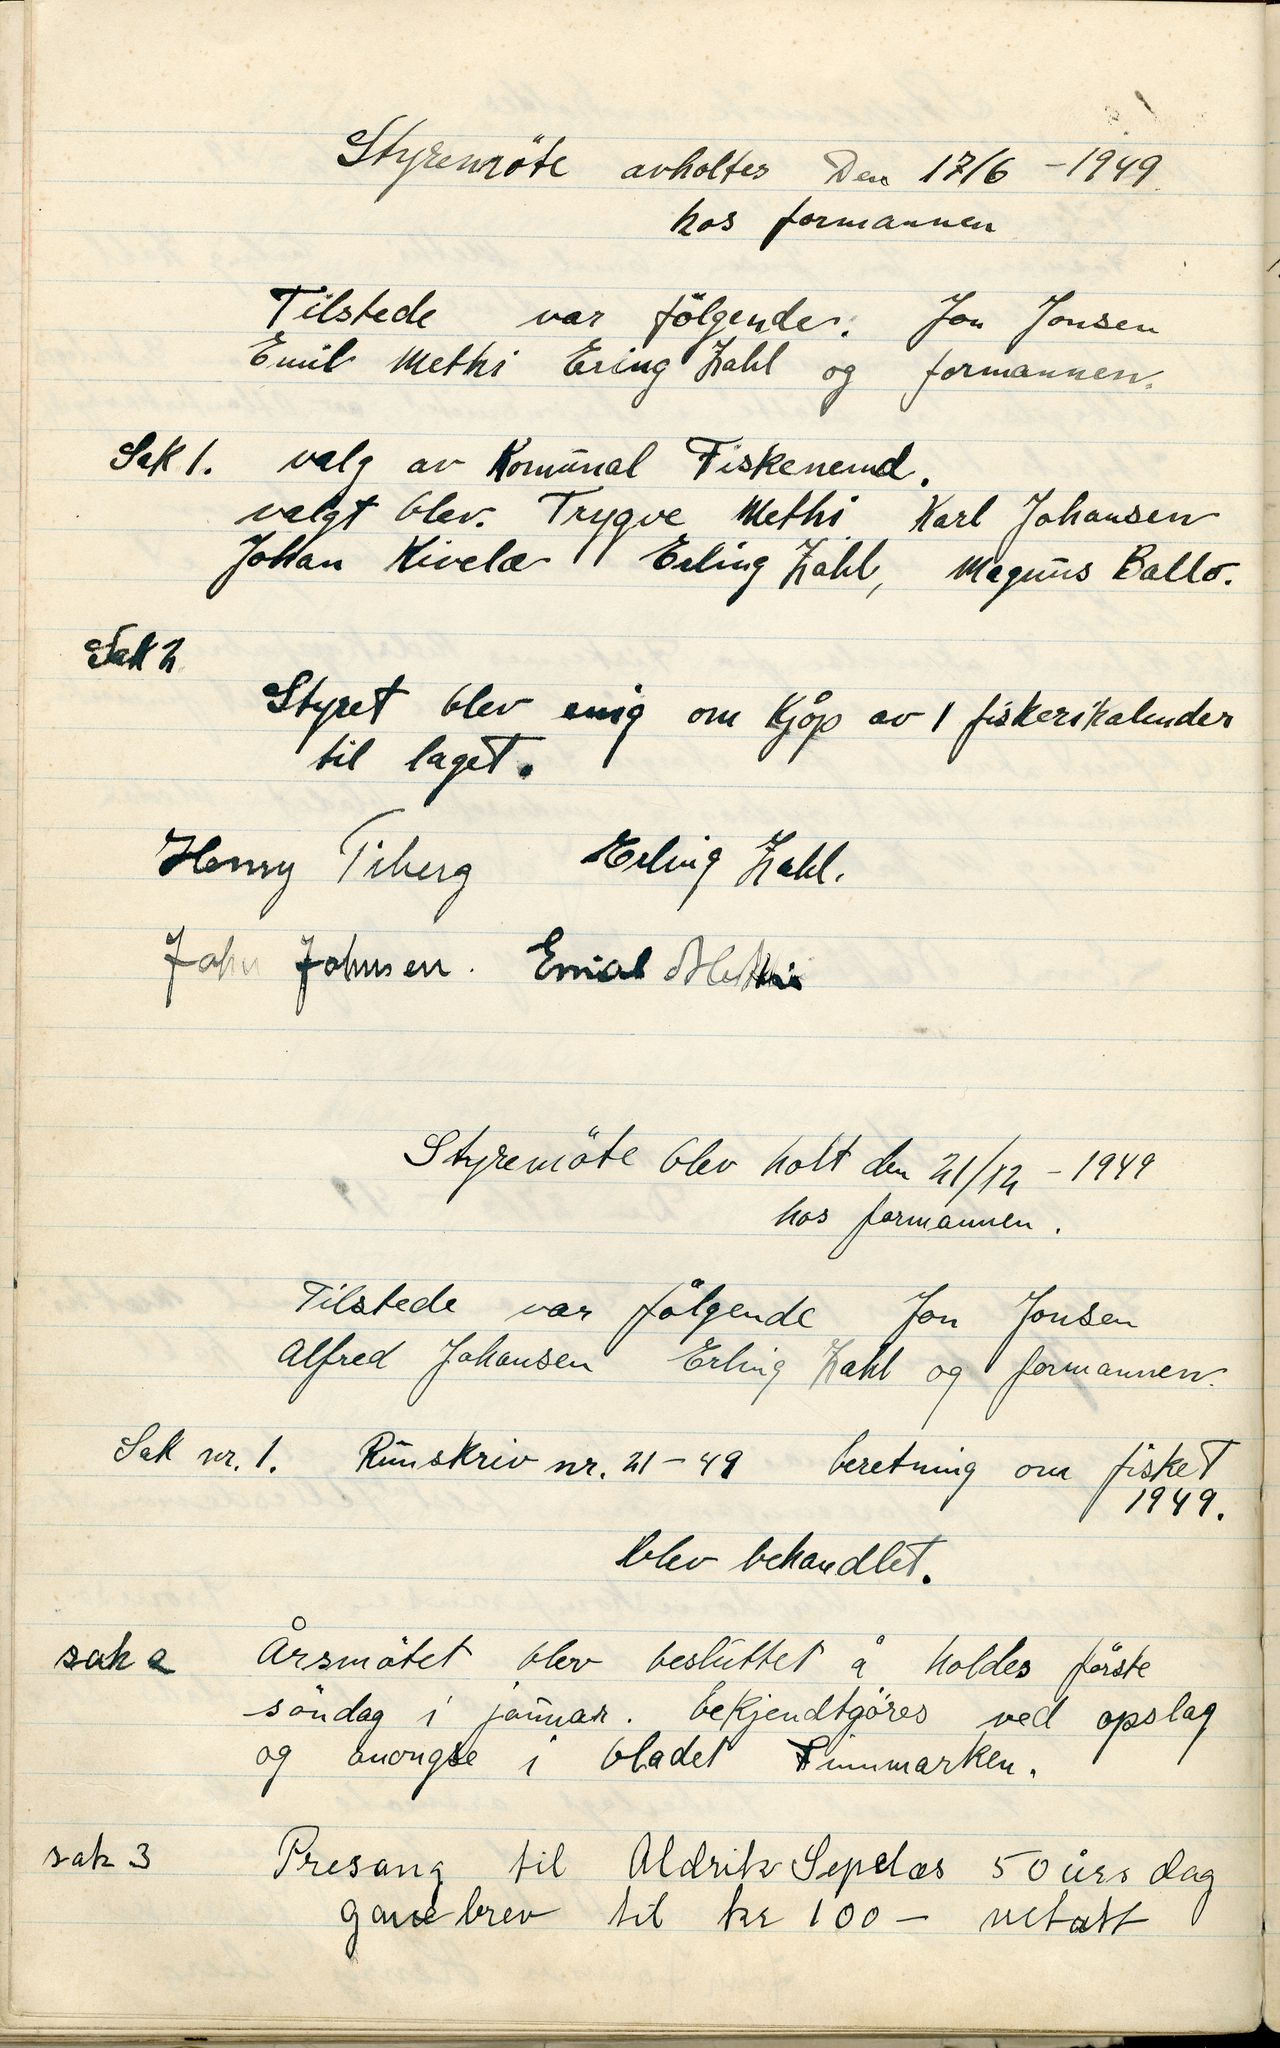 Styremöte avholtes Den 17/6 - 1949
hos formannen
Tilstede var fölgende. Jon Jonsen
Emil Methi Ering Zahl og formannen.
Sak 1. valg av Komunal Fiskenemd.
valgt blev. Trygve Methi Karl Johansen
Johan Kivelæ Erling Zahl, Magnus Ballo.
Sak 2
Styret blev enig om Kjøp av 1 fiskerikalender
til laget.
Henry Tiberg Erling Zahl.
John Johnsen. Emial Methi
Styremöte blev holt den 21/12 - 1949
hos formannen.
Tilstede var fölgende Jon Jonsen
Alfred Johansen Erling Zahl og formannen.
Sak nr. 1. Runskriv nr. 21-49 beretning om fisket
1949.
blev behandlet.
sak 2 Årsmötet blev besluttet å holdes förste
söndag i januar. bekjendtgöres ved opslag
og anongse i bladet Finnmarken.
sak 3 Presang til Aldrik Sepelæs 50 års dag
gavebrev til kr 100 - vetatt